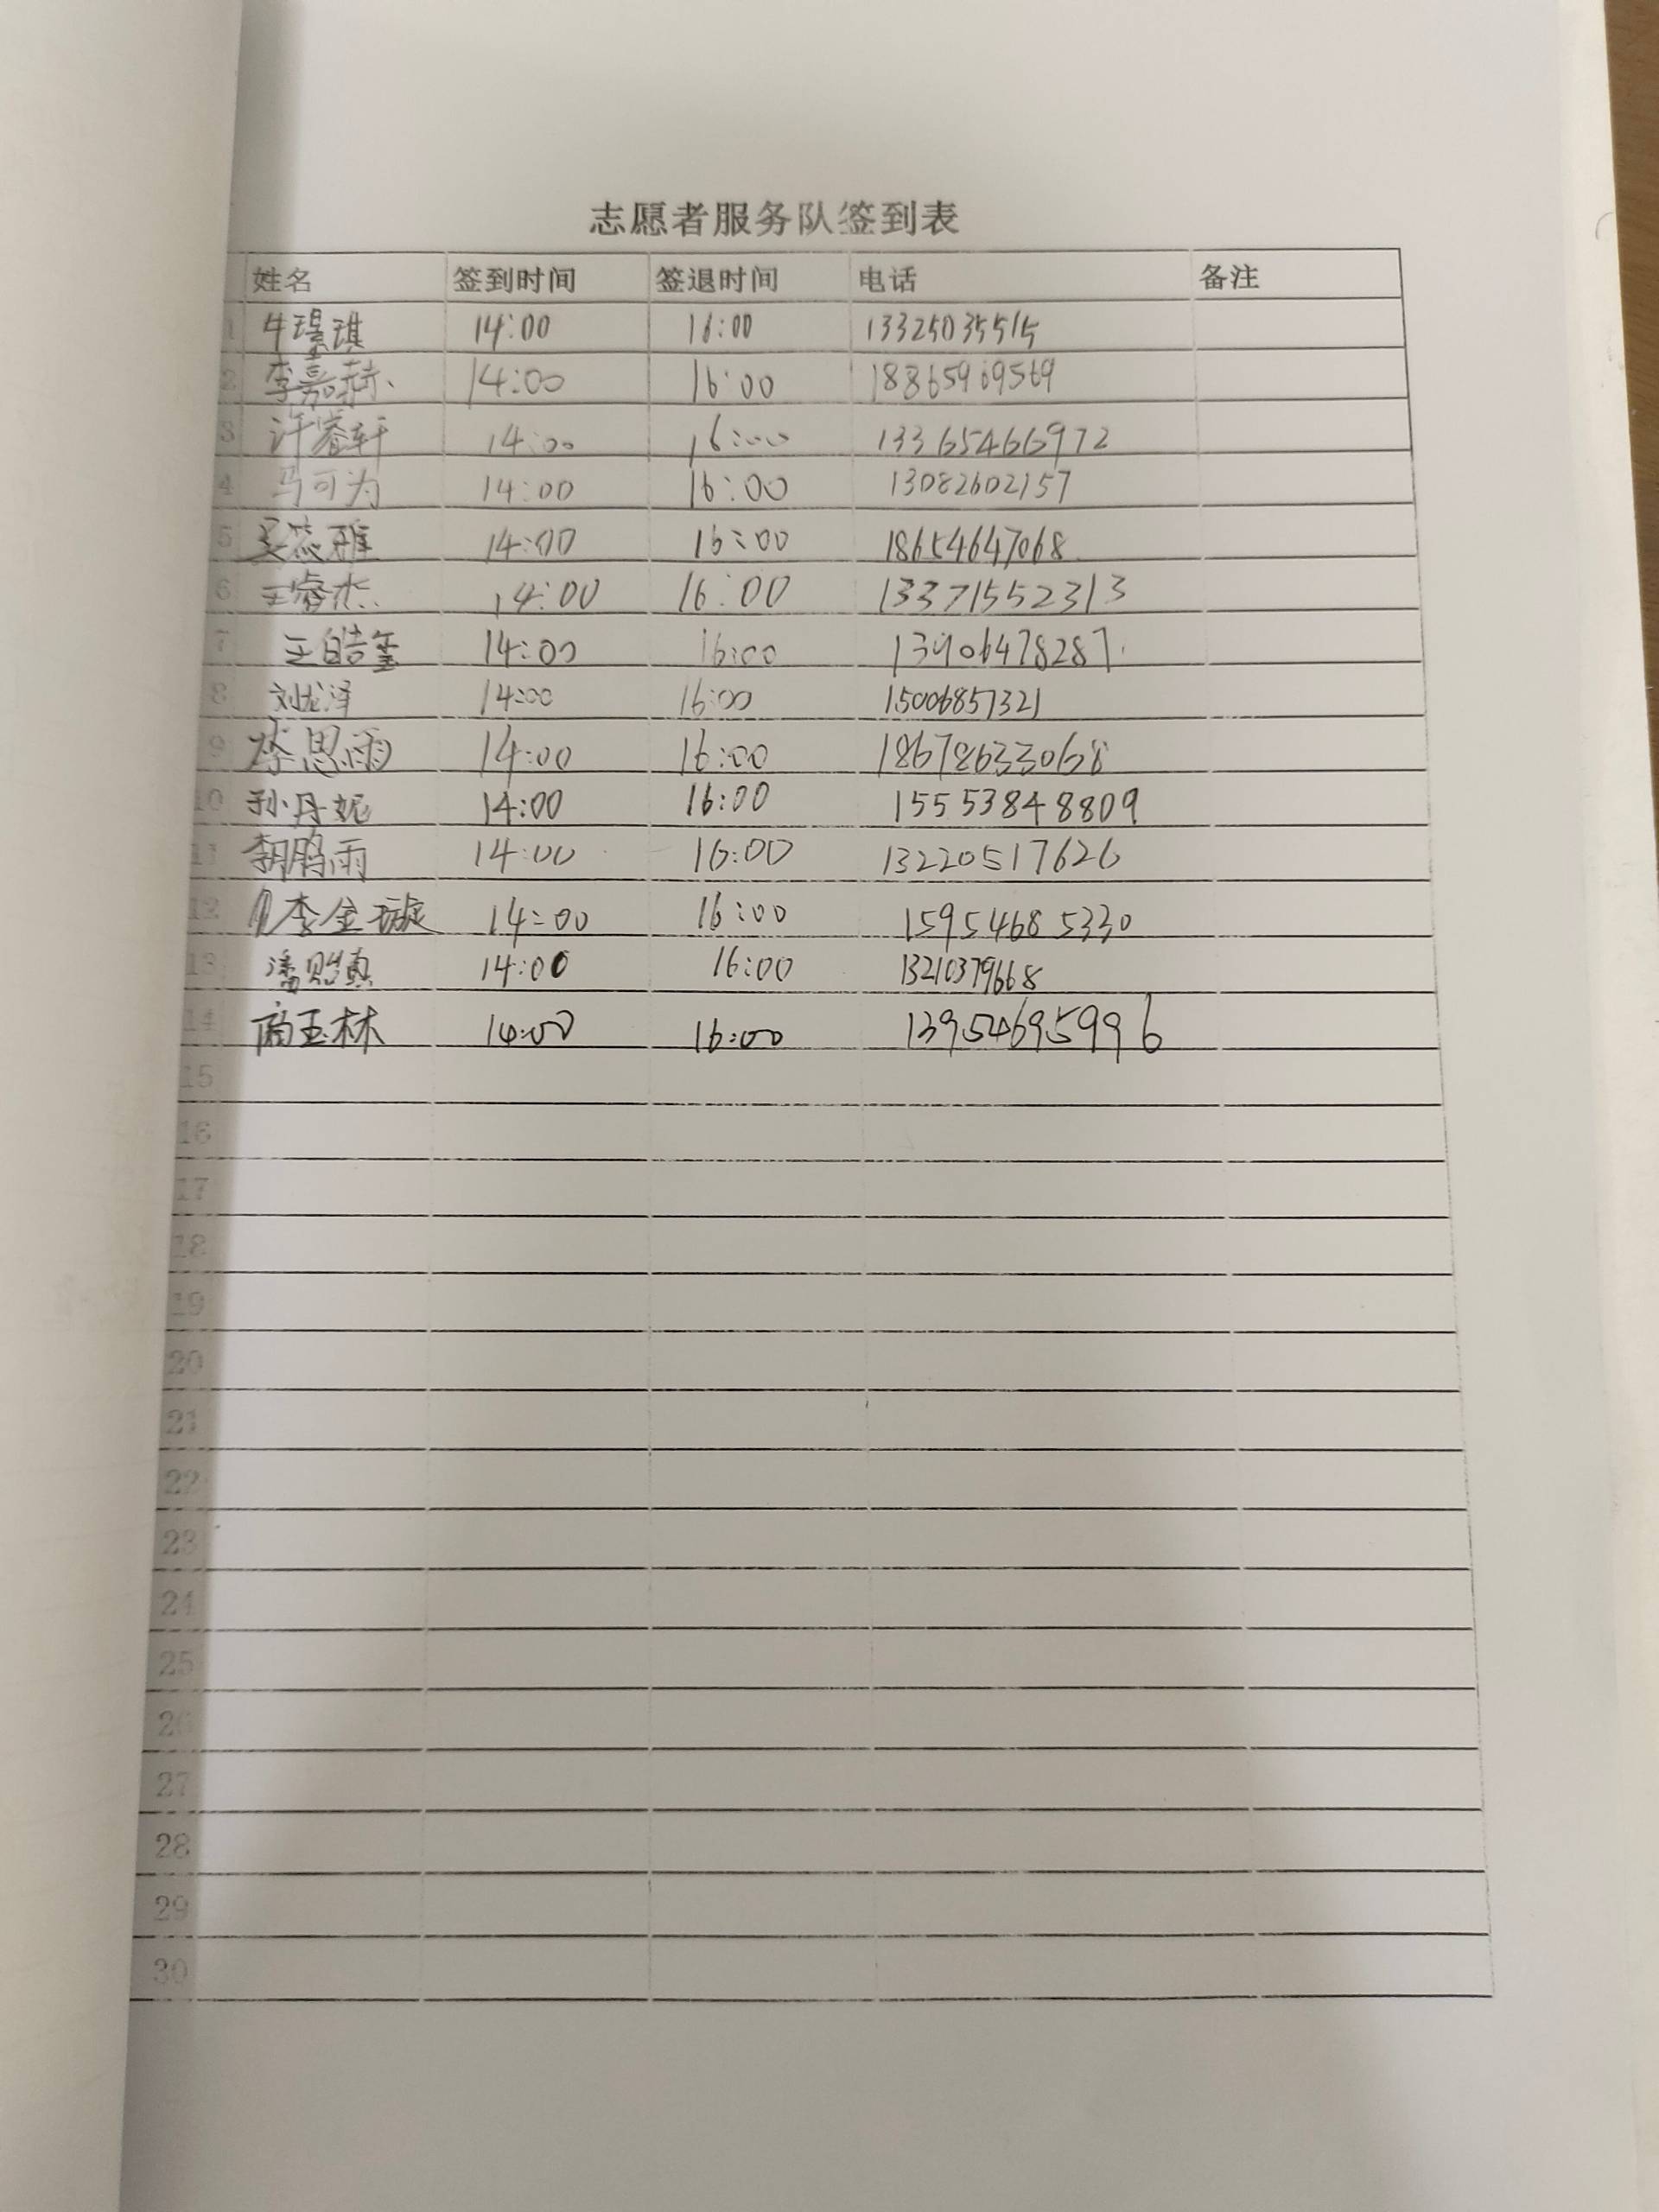 志愿者服务队签到表
姓名 签到时间 签退时间 电话 备注
1 牛璟琪 14:00 16:00 13325035515
2 李嘉赫 14:00 16:00 18865969569
3 许睿轩 14:00 16:00 13365466972
4 马可为 14:00 16:00 13082602157
5 14:00 16:00 18654647068
6 王睿杰 14:00 16:00 13371552313
7 王皓玺 14:00 16:00 13906478287
8 刘龙泽 14:00 16:00 15006857321
9 李思雨 14:00 16:00 18678633068
10 孙丹妮 14:00 16:00 15553848809
11 14:00 16:00 13220517626
12 李金璇 14:00 16:00 15954685330
13 潘贻真 14:00 16:00 13210379668
14 商玉林 14:00 16:00 13954695996
15
16
17
18
19
20
21
22
23
24
25
26
27
28
29
30